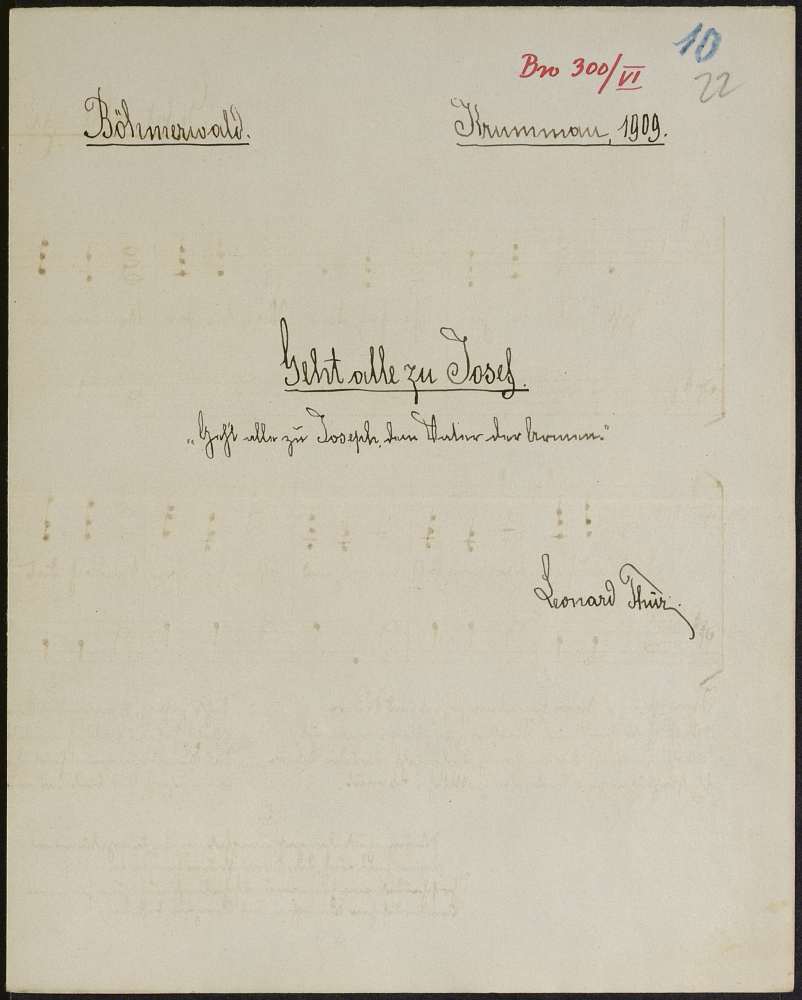 10
Bro 300/VI
22
Böhmerwald.
Krummau, 1909.
Geht alle zu Josef.
„Geht alle zu Joseph, dem Vater der Armen."
Leonard Thür.